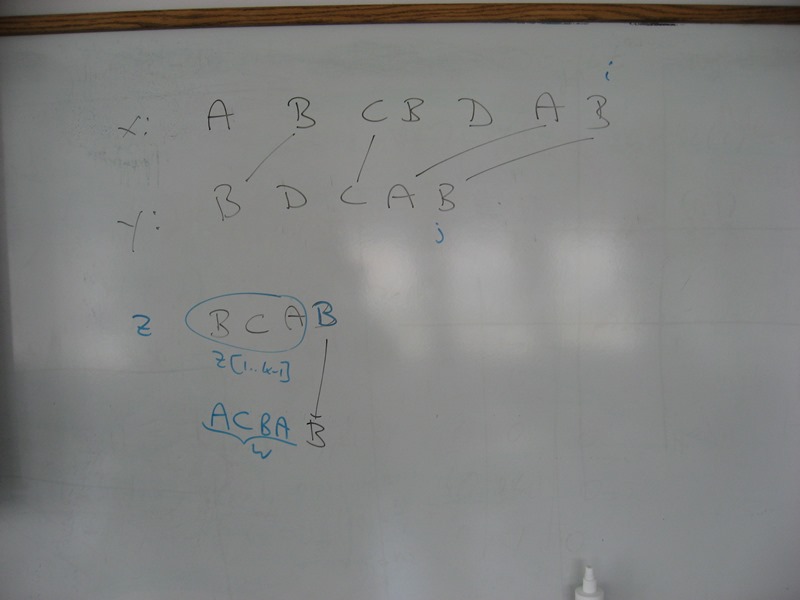 i
x: A B C B D A B
y: B D C A B
j
z B C A B
z[1..k-1]
A C B A B
w